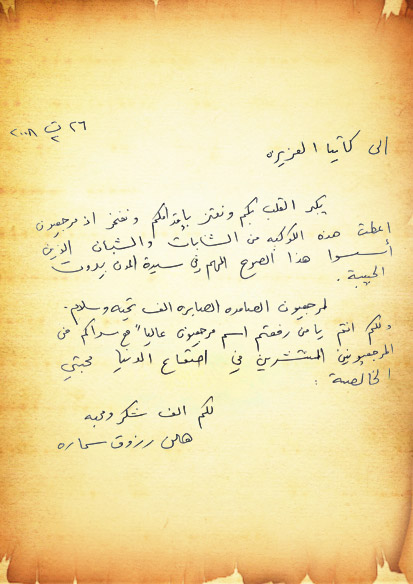 ٢٦ ت٢ ٢٠٠٨
الى كاتيا العزيزه
يكبر القلب بكم ونعتز بإقدامكم ونفتخر اذ مرجعيون
اعطت هذه الكوكبه من الشابات والشبان الذين
أسسوا هذا الصرح الهم في سيدة المدن بيروت
الحبيبة .
لمرجعيون الصامده الصابره الف تحيه وسلام .
ولكم انتم يا من رفعتم اسم مرجعيون عالياً مع سواكم من
المرجعيونيين المنتشرين في اصقاع الدنيا محبتي
الخالصة :
لكم الف شكر ومحبه
رزوق سماره